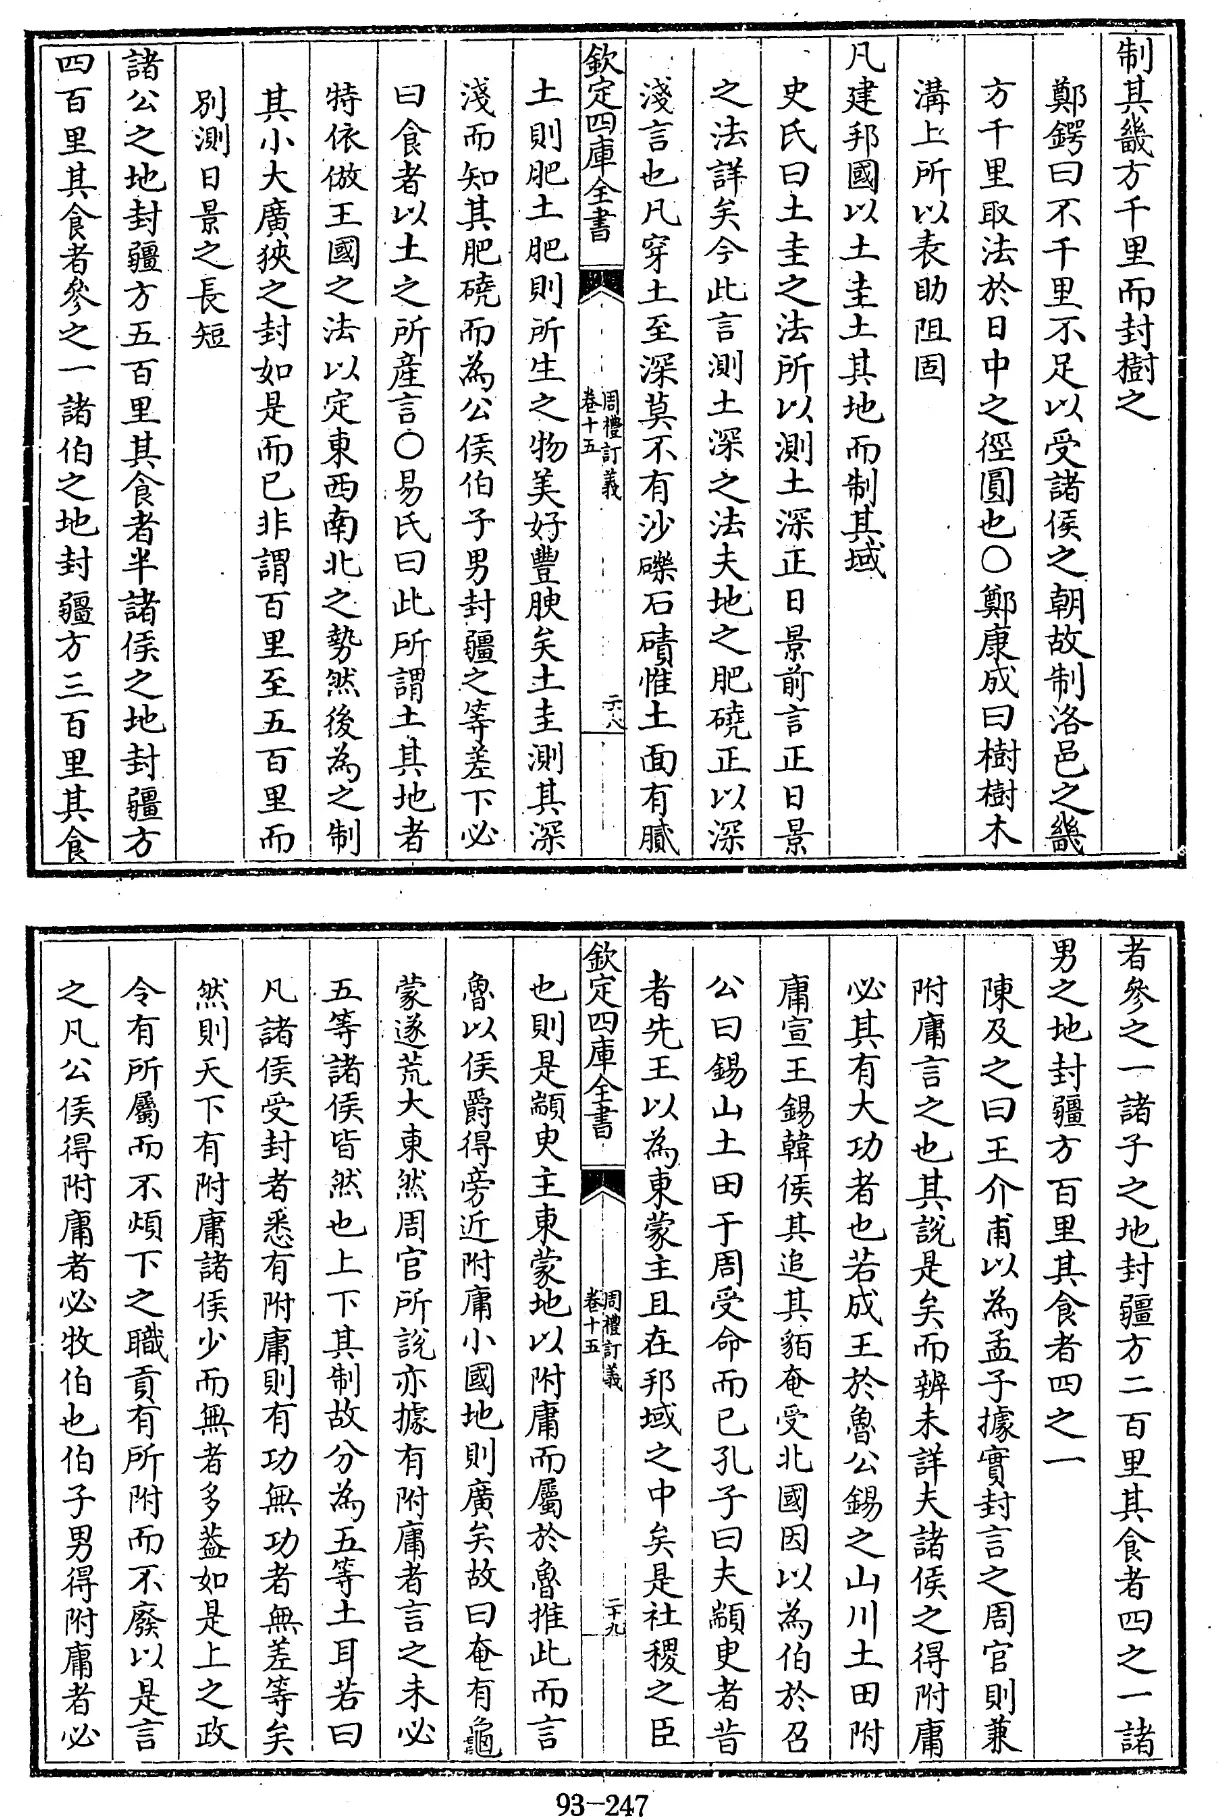 制其畿方千里而封樹之
鄭鍔曰不千里不足以受諸侯之朝故制洛邑之畿
方千里取法於日中之徑圓也○鄭康成曰樹樹木
溝上所以表助阻固
凡建邦國以土圭土其地而制其域
史氏曰土圭之法所以測土深正日景前言正日景
之法詳矣今此言測土深之法夫地之肥磽正以深
淺言也凡穿土至深莫不有沙礫石磧惟土面有膩
欽定四庫全書
周禮訂義
卷十五
二八
土則肥土肥則所生之物美好豐腴矣土圭測其深
淺而知其肥磽而為公侯伯子男封疆之等差下必
曰食者以土之所産言○易氏曰此所謂土其地者
特依倣王國之法以定東西南北之勢然後為之制
其小大廣狹之封如是而已非謂百里至五百里而
別測日景之長短
諸公之地封疆方五百里其食者半諸侯之地封疆方
四百里其食者參之一諸伯之地封疆方三百里其食
者參之一諸子之地封疆方二百里其食者四之一諸
男之地封疆方百里其食者四之一
陳及之曰王介甫以為孟子據實封言之周官則兼
附庸言之也其説是矣而辨未詳夫諸侯之得附庸
必其有大功者也若成王於魯公錫之山川土田附
庸宣王錫韓侯其追其貊奄受北國因以為伯於召
公曰錫山土田于周受命而已孔子曰夫顓臾者昔
者先王以為東蒙主且在邦域之中矣是社稷之臣
欽定四庫全書
周禮訂義
卷十五
二十九
也則是顓臾主東蒙地以附庸而屬於魯推此而言
魯以侯爵得旁近附庸小國地則廣矣故曰奄有龜
蒙遂荒大東然周官所説亦據有附庸者言之未必
五等諸侯皆然也上下其制故分為五等土耳若曰
凡諸侯受封者悉有附庸則有功無功者無差等矣
然則天下有附庸諸侯少而無者多葢如是上之政
令有所屬而不煩下之職貢有所附而不廢以是言
之凡公侯得附庸者必牧伯也伯子男得附庸者必
93-247